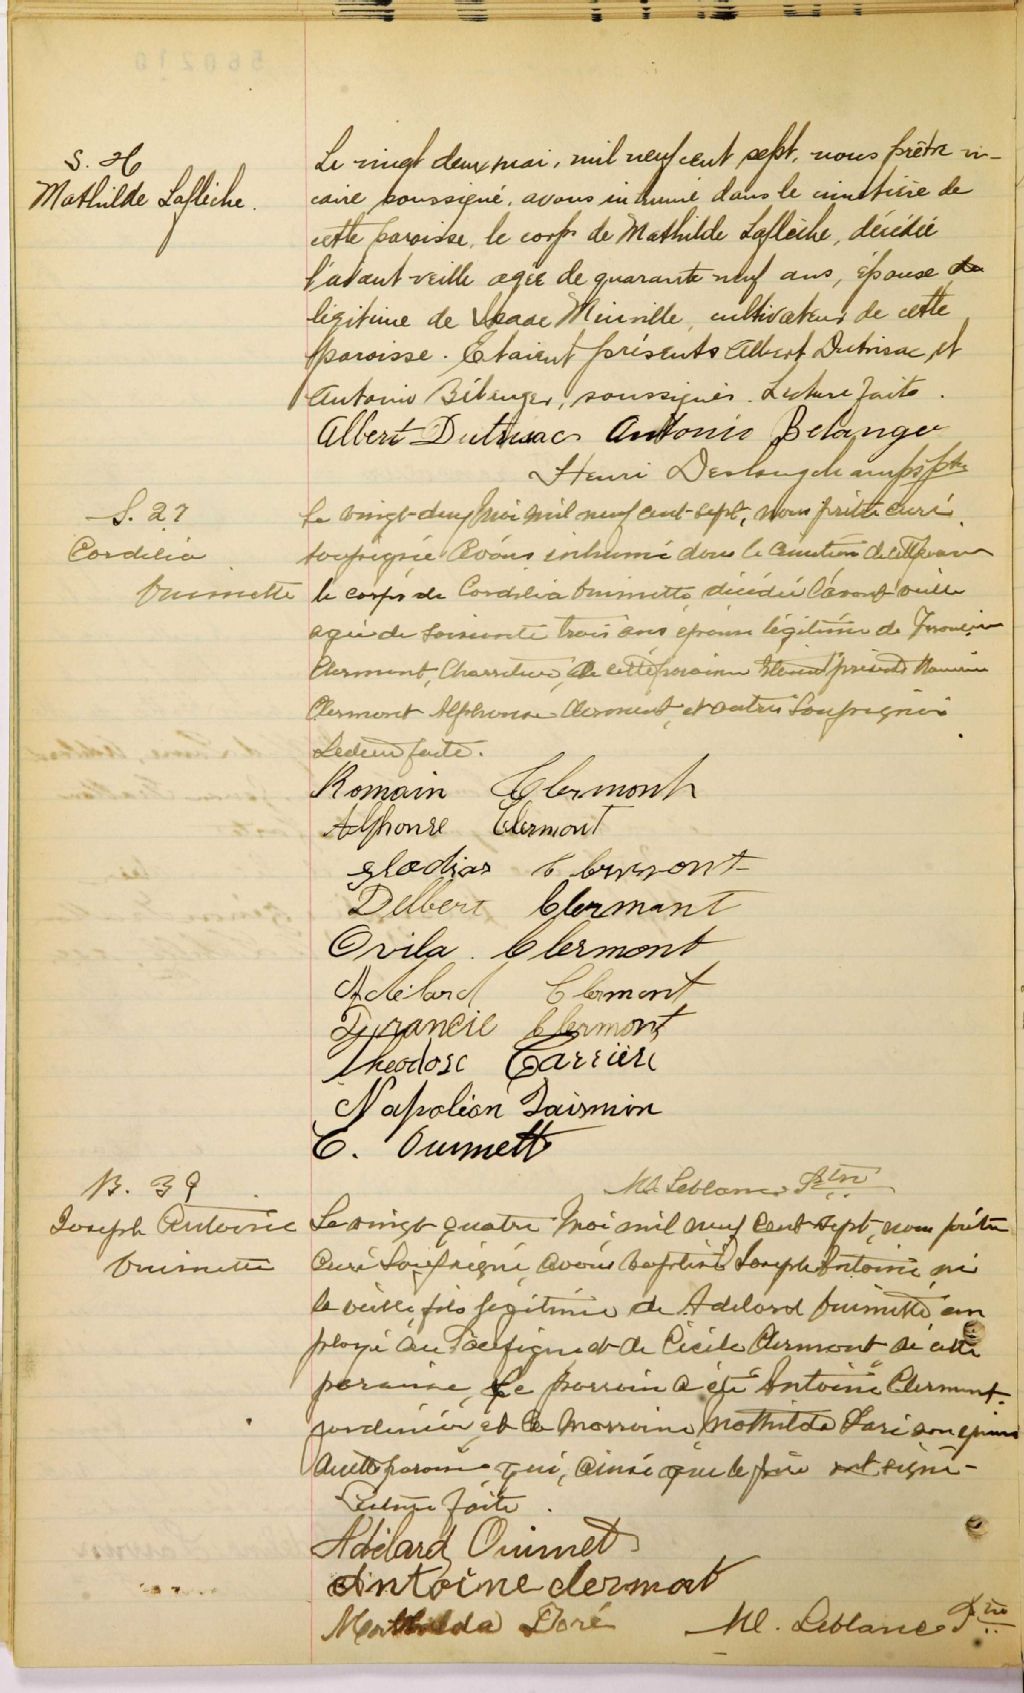 S. H
Mathilde Laflèche.
Le vingt deux mai, mil neuf cent sept, nous prêtre vi-
caire soussigné, avons inhumé dans le cimetière de
cette paroisse, le corps de Mathilde Laflèche, décédée
l'avant-veille agée de quarante neuf ans, épouse
légitime de Isaac Miville, cultivateur de cette
paroisse. Etaient présents Albert Dutrisac et
Antonio Bélanger, soussignés. Lecture faite.
Albert Dutrisac Antonio Belanger
Henri Deslongchamps ptre
S. 27
Cordélia
Ouimette
Le vingt-deux Mai mil neuf cent-sept, nous prêtre curé
soussigné avons inhumé dans le cimetière de cette paroisse
le corps de Cordélia Ouimette, décédée l'avant veille
agée de soixante trois ans épouse légitime de
Clermont, Charretier, de cette paroisse Etaient présents Romain
Clermont Alphonse Clermont, et autres Soussignés
Lecture faite.
Romain Clermont
Alphonse Clermont
Clermont
Delbert Clermant
Ovila Clermont
Adélard Clermont
Francis Clermont
Theodore Carrière
Napoléon
C. Ouimett
Md. Leblanc Ptre
B. 39
Joseph Antoine
Ouimette
Le vingt quatre Mai mil neuf Cent sept, nous prêtre
Curé Soussigné, avons baptisé Joseph Antoine, né
la veille, fils légitime de Adelard Ouimette em
ployé au Pacifique et de Cécile Clermont de cette
paroisse, Le parrain a été Antoine Clermont
jardinier, et la Marraine, Mathilda Doré son épouse
de cette paroisse qui, ainsi que le père ont signé -
Lecture faite.
Adélard Ouimet
Antoine clermont
Mathilda Doré Md. Leblanc Ptre